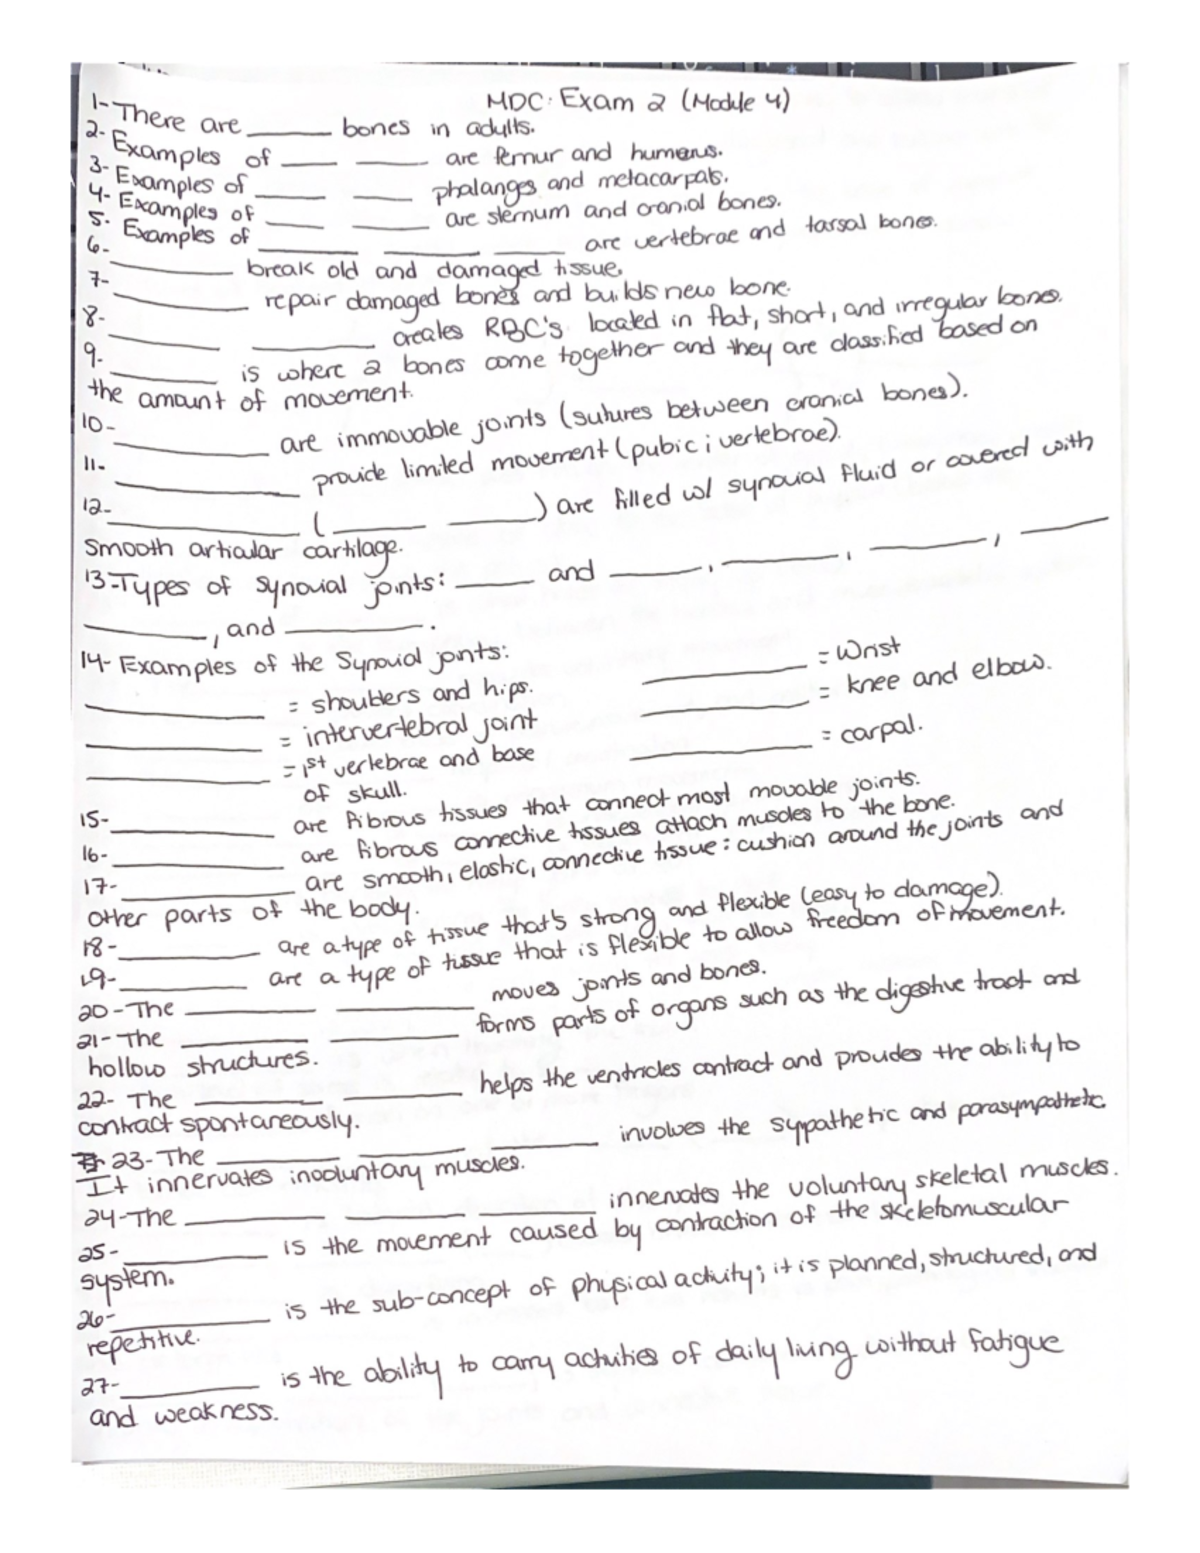 MDC: Exam 2 (Module 4)
1- There are ______ bones in adults.
2- Examples of ____ _____ are femur and humerus.
3- Examples of _____ ____ phalanges and metacarpals.
4- Examples of ____ _____ are sternum and cranial bones.
5- Examples of _____ _____ _____ are vertebrae and tarsal bones.
6- ________ break old and damaged tissue.
7- ________ repair damaged bones and builds new bone.
8- ________ ________ creates RBC's located in flat, short, and irregular bones.
9- ________ is where 2 bones come together and they are classified based on
the amount of movement.
10- ________ are immovable joints (sutures between cranial bones).
11- ________ provide limited movement (pubic; vertebrae).
12- ________ ( ______ ______ ) are filled w/ synovial fluid or covered with
smooth articular cartilage.
13- Types of synovial joints: _____ and ______, ________, ________, ______
________, and ________.
14- Examples of the Synovial joints:
________ = Wrist
________ = shoulders and hips.
________ = knee and elbow.
________ = intervertebral joint
________ = carpal.
________ = 1st vertebrae and base
of skull.
15- ________ are fibrous tissues that connect most movable joints.
16- ________ are fibrous connective tissues attach muscles to the bone.
17- ________ are smooth, elastic, connective tissue: cushion around the joints and
other parts of the body.
18- ________ are a type of tissue that's strong and flexible (easy to damage).
19- ________ are a type of tissue that is flexible to allow freedom of movement.
20- The ________ ________ moves joints and bones.
21- The ________ ________ forms parts of organs such as the digestive tract and
hollow structures.
22- The ________ ________ helps the ventricles contract and provides the ability to
contract spontaneously.
23- The ________ ________ ________ involves the sypathetic and parasympathetic.
It innervates involuntary muscles.
24- The ________ ________ ________ innervates the voluntary skeletal muscles.
25- ________ is the movement caused by contraction of the skeletomuscular
system.
26- ________ is the sub-concept of physical activity; it is planned, structured, and
repetitive.
27- ________ is the ability to carry activities of daily living without fatigue
and weakness.